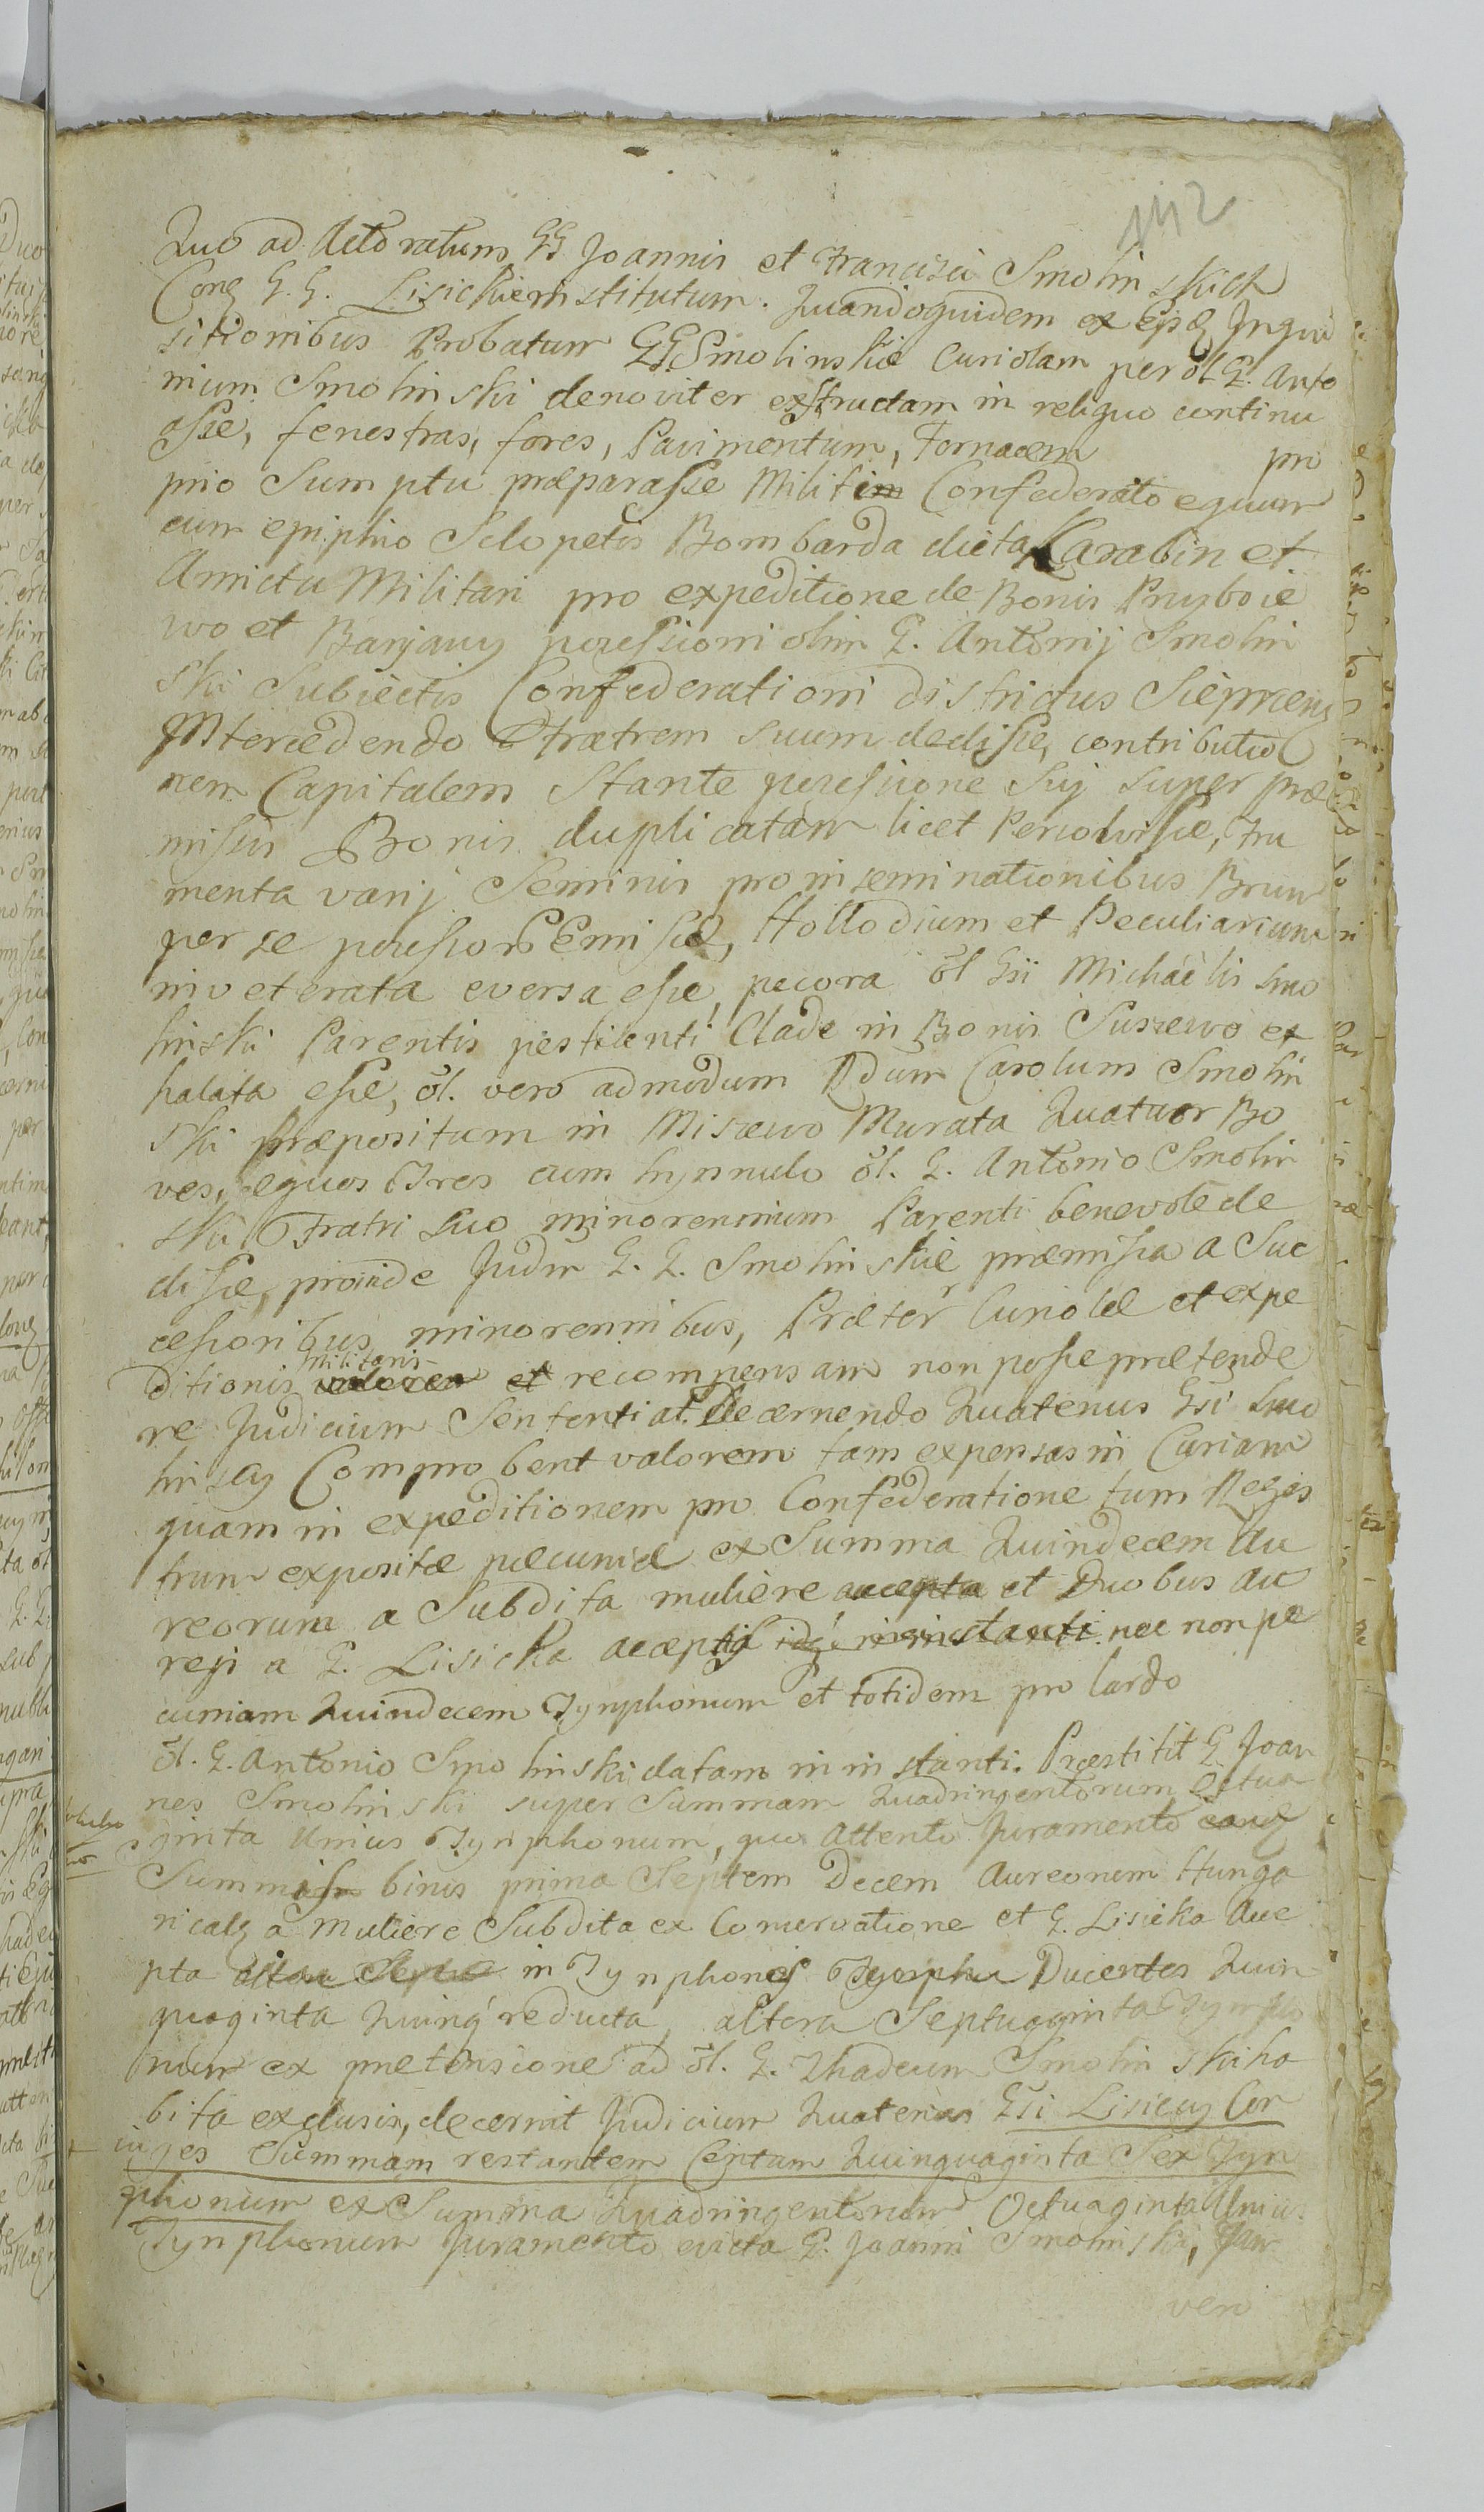 142
Quo ad Actoratum GG Joannis et Francisci Smolinskich
Cong G. G. Lisickie institutum. Quandoquidem ex Ejsq Inqui
sitionibus Probatum GG Smolinskie Curiolam per ol G. Anto
nium Smolinski denoviter exstructam in reliquo continu
asse, fenestras, fores, Pavimentum, Fornacem pro
prio Sumptu præparasse Militi Confederato equum
cum epiphio Sclopetis Bombarda dicta Karabin et
Amictu Militari pro expeditione de Bonis Przyboie
wo et possessioni olim G. Antonij Smolin
ski Subiectis Confederationi districtus Sieprcens
Intercedendo Fratrem suum dedisse, contributio
nem Capitalem Stante possessione Sui super præ
missis Bonis duplicatam licet Persolvisse, Fru
menta varij Seminis pro inseminationibus Brum
per se possessor Emisse, Hollodium et Peculiarium
inveterata eversa esse, pecora ol Gsi Michaëlis Smo
linski Parentis pestilenti Clade in Bonis Suszewo ex
halata esse, ol. vero admodum Rdum Carolum Smolin
ski Præpositum in Miszewo Murata Quatuor Bo
ves, equos Tres cum hynnulo ol. G. Antonio Smolin
ski Fratri suo minorennium Parenti benevole de
disse, proinde Judm G. G. Smolinskie præmissa a Suc
cessoribus minorennibus, Præter Curiolæ et expe
ditionis Militaris recompensam non posse prætende
re Judicium Sententiat. Decernendo Quatenus Gsi Smo
linscy Comprobent valorem tam expensas in Curiam
quam in expeditionem pro Confederatione tum Regis
trum expositæ pecuniæ ex Summa Quindecem Au
reorum a Subdita muliere accepta et Duobus Au
reji a G. Lisicka acceptis idq in instanti nec non pe
cuniam Quindecem Tynphonum et totidem pro Lardo
ol. G. Antonio Smolinski datam in instanti. Præstitit G Joan
nes Smolinski super Summam Quadringentorum Octua
ginta Unius Tynphonum, quo attento Juramento eauq
Summis binis prima Septem Decem Aureorum Hunga
ricalq a Muliere Subdita ex Conservatione et G. Lisicka Acce
pta in Tynphones Ducentos Quin
quaginta Quinq reducta, altera Septuaginta Tynpho
num ex prætensione ad ol. G. Thadeum Smolinski ha
bita exclusis, decernit Judicium Quatenus Gsi Lisiccy Con
iuges Summam restantem Centum Quinquaginta Sex Tyn
phonum ex Summa Quadringentorum Octuaginta Unius
Tynphonum Juramento evicta G. Joanni Smolinski,
vero